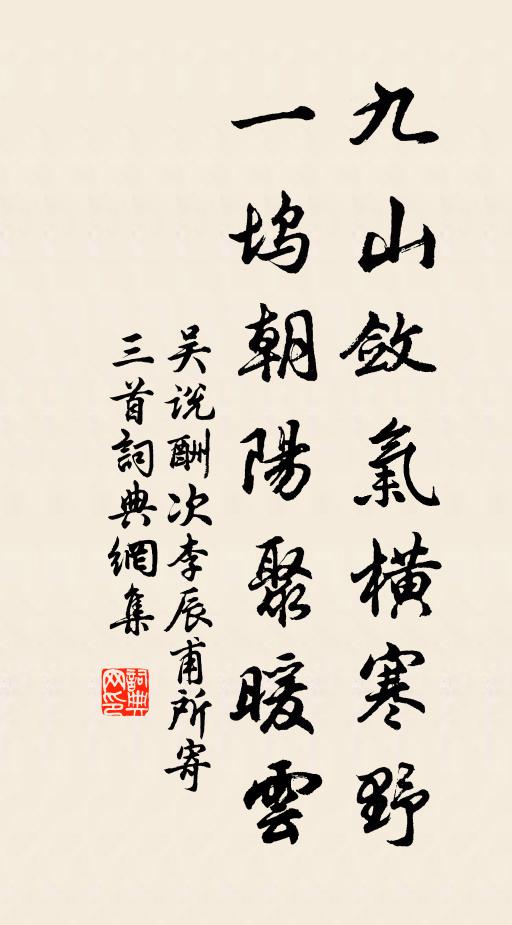 九山斂氣橫寒野
一塢朝陽聚暖雲
吴说酬次李辰甫所寄
三首詞典網集
詞典网印